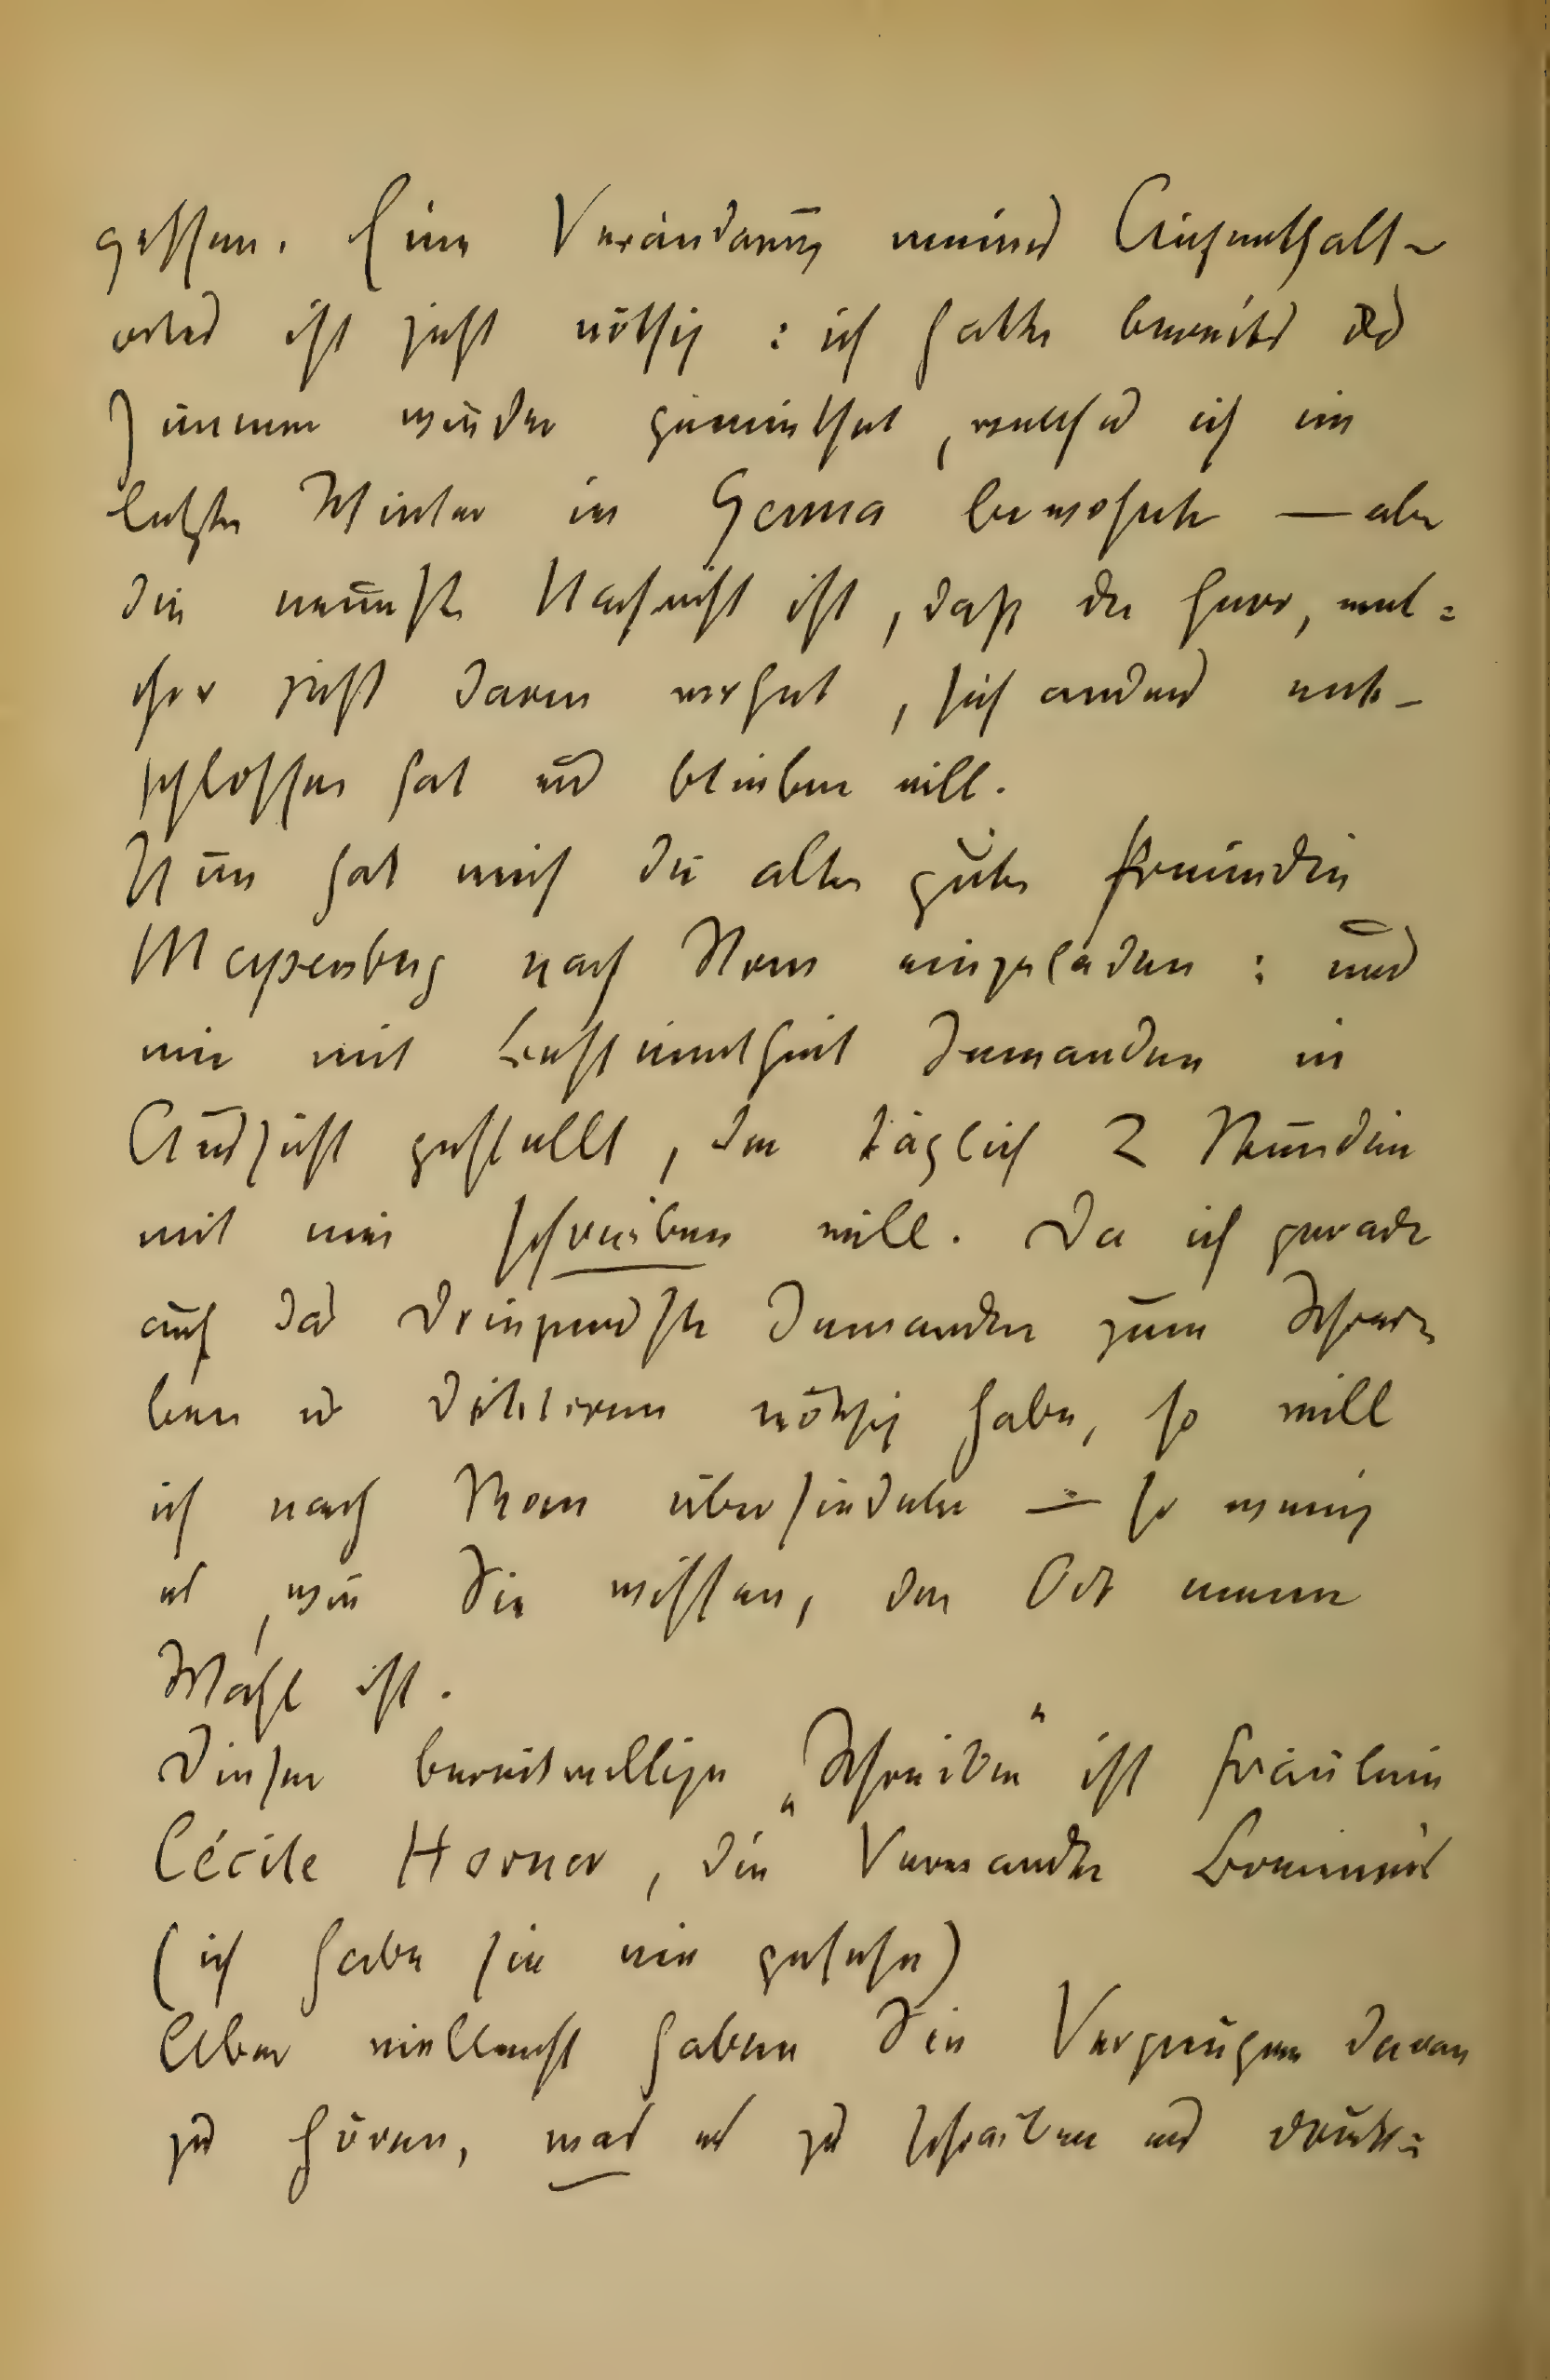 gessen. Eine Veränderung meines Aufenthalt-
ortes ist jetzt nöthig : ich hatte bereits das
Zimmer wieder gemiethet, welches ich im
letzten Winter in Genua bewohnte — aber
die neueste Nachricht ist, daß der Herr, wel=
cher jetzt darin wohnt, sich anders ent-
schlossen hat und bleiben will.
Nun hat mich die alte gute Freundin
Meysenbug nach Rom eingeladen : und
mir mit Bestimmtheit Jemanden in
Aussicht gestellt, der täglich 2 Stunden
mit mir schreiben will. Da ich gerade
auf das dringendste Jemanden zum Schrei-
ben u Diktieren nöthig habe, so will
ich nach Rom übersiedeln — so wenig
es, wie Sie wissen, der Ort meiner
Wahl ist.
Dieser bereitwillige „Schreiber“ ist Fräulein
Cécile Horner, die Verwandte Brenner's
(ich habe sie nie gesehn)
Aber vielleicht haben Sie Vergnügen davon
zu hören, was es zu schreiben und druck=